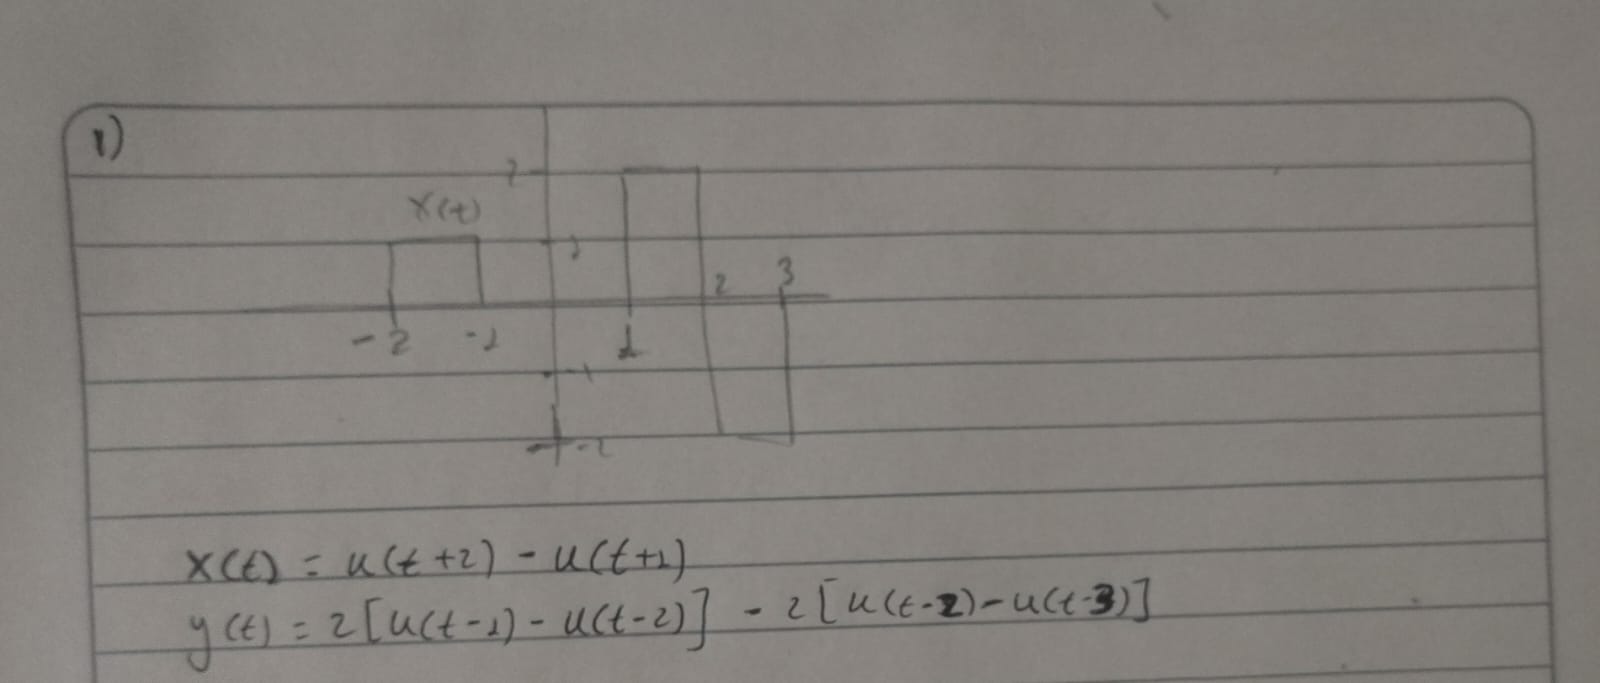 1)
2
x(t)
1
2 3
-2 -1 1
-1
-2
x(t) = u(t+2) - u(t+1)
y(t) = 2[u(t-1) - u(t-2)] - 2[u(t-2) - u(t-3)]